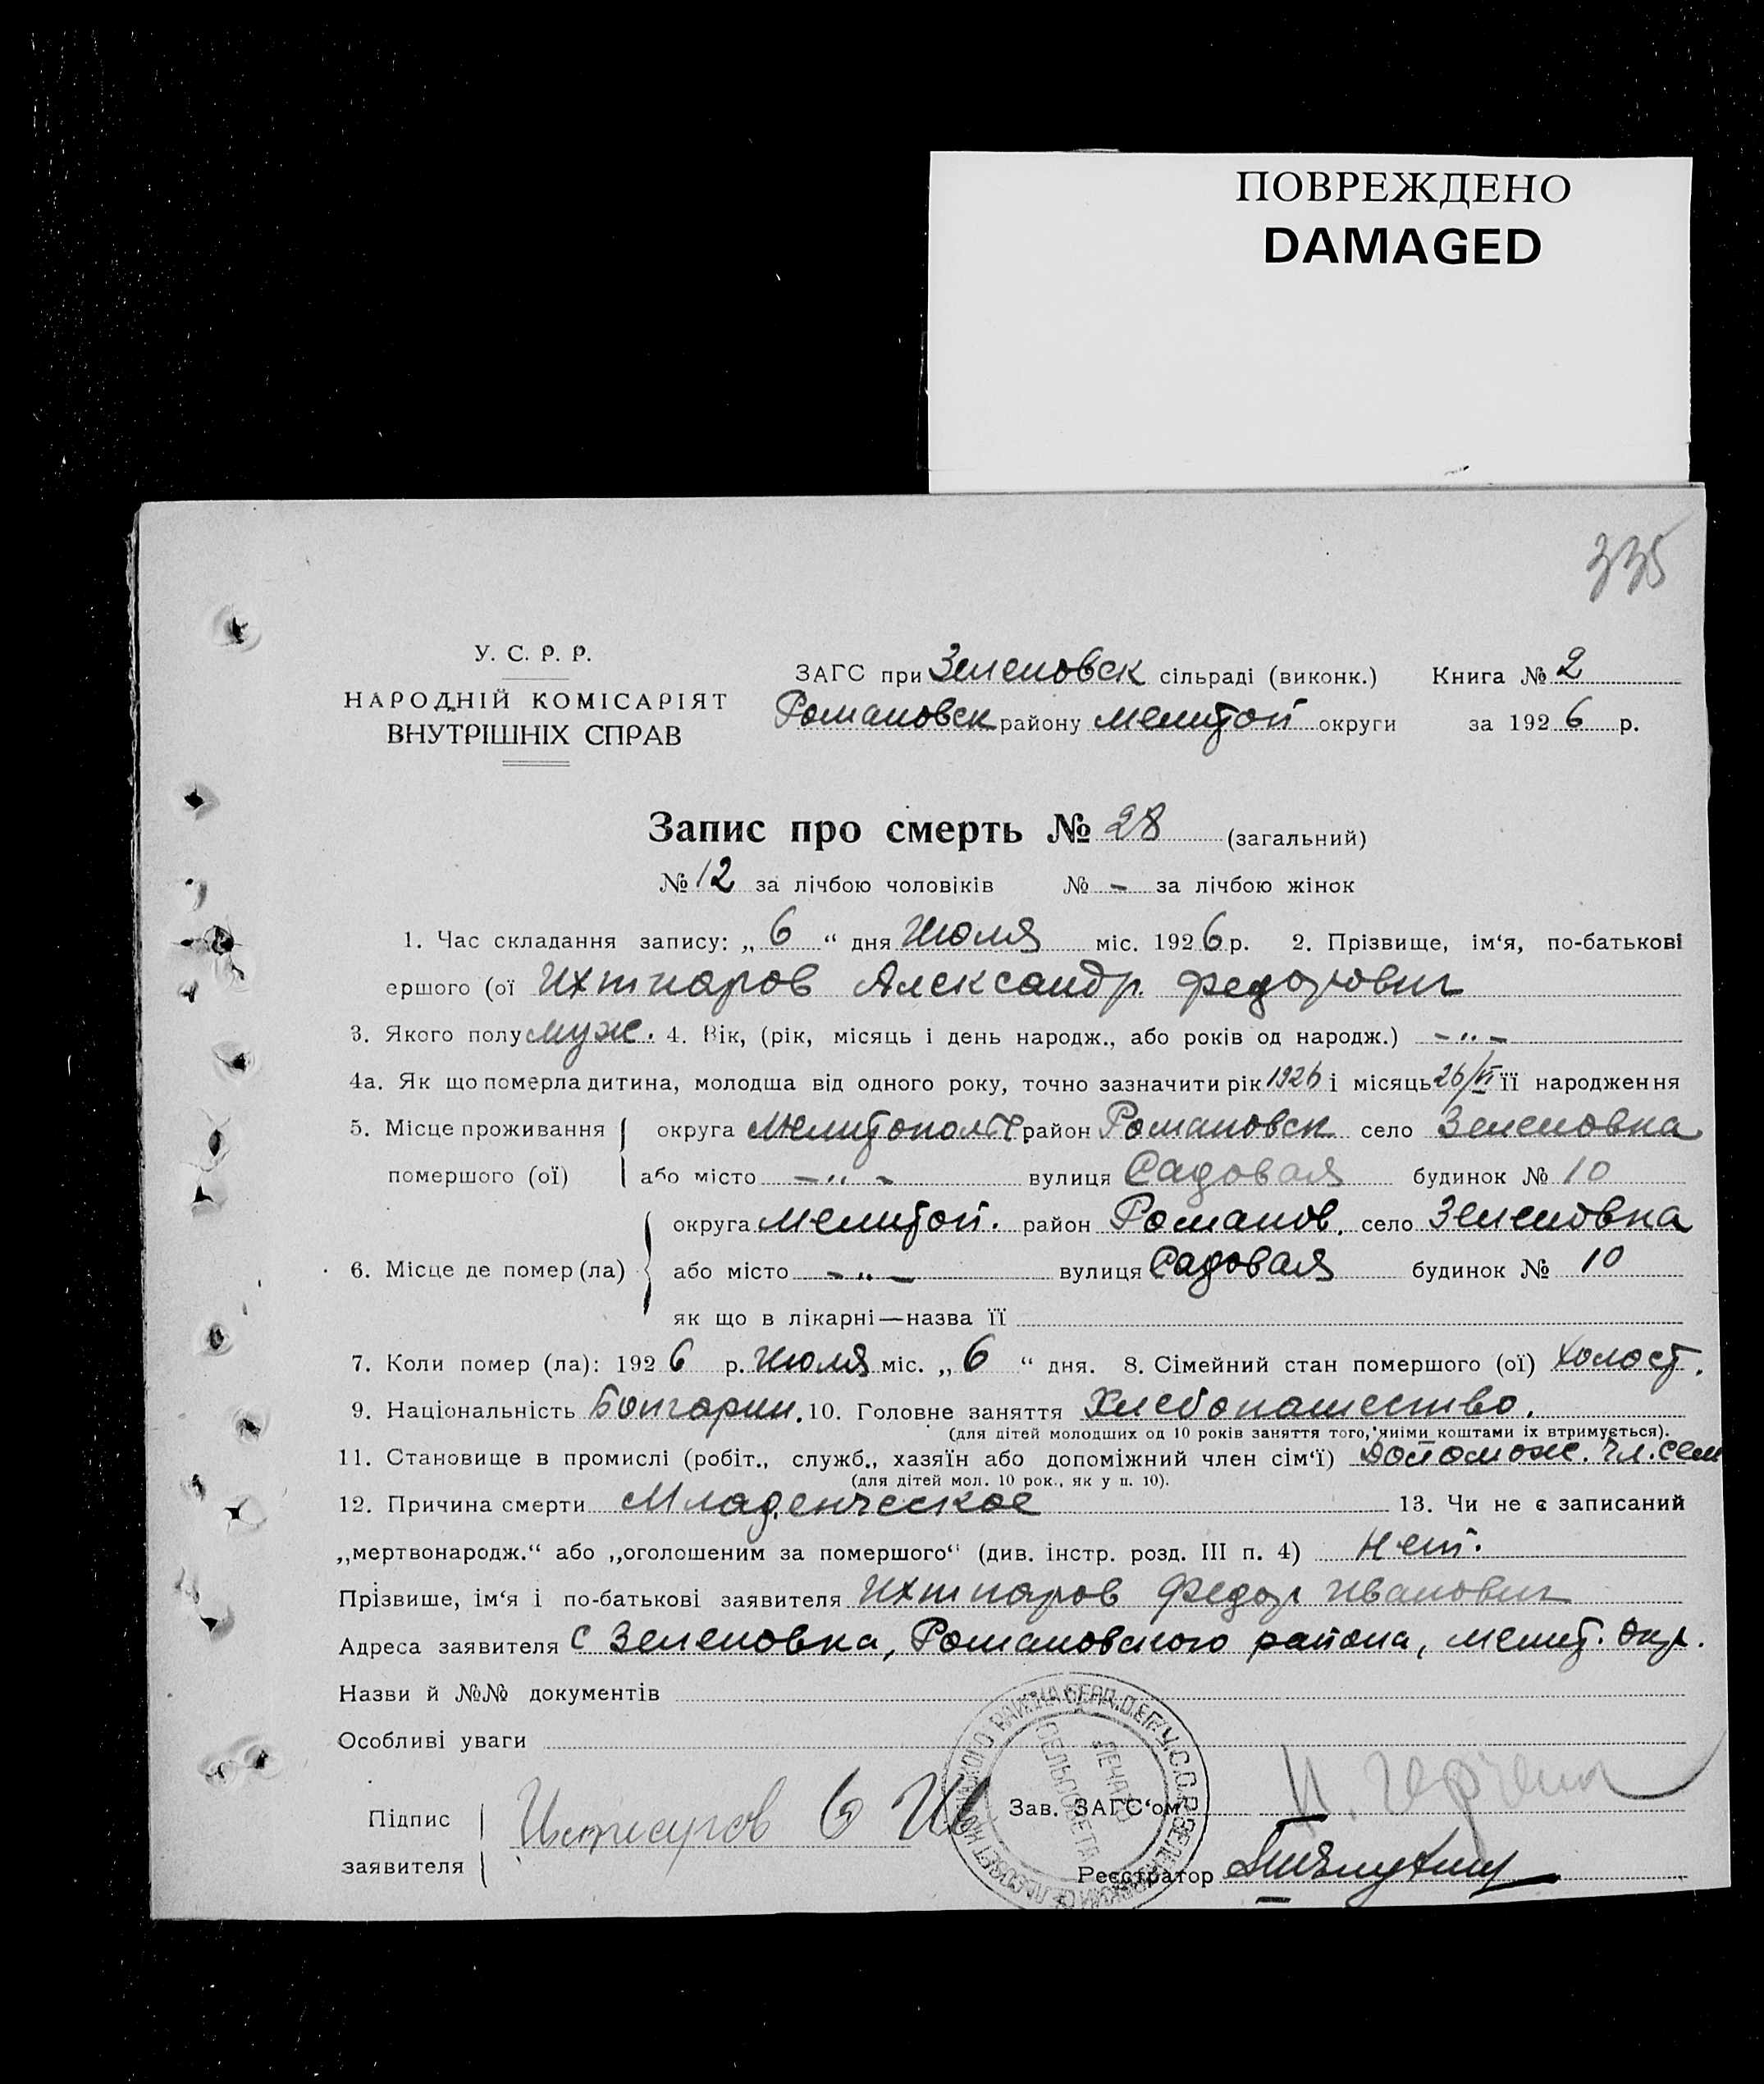 ПОВРЕЖДЕНО
DAMAGED
335
У. С. Р. Р.
НАРОДНІЙ КОМІСАРІЯТ
ВНУТРІШНІХ СПРАВ
ЗАГС при Зеленовск сільраді (виконк.) Книга № 2
Романовск району Мелитоп округи за 1926 р.
Запис про смерть № 28 (загальний)
№ 12 за лічбою чоловіків № - за лічбою жінок
1. Час складання запису: „6“ дня Июля міс. 1926 р. 2. Прізвище, ім‘я, по-батькові
ершого (ої Ихтиаров Александр Федорович
3. Якого полу муж. 4. Вік, (рік, місяць і день народж., або років од народж.) -„-
4а. Як що померла дитина, молодша від одного року, точно зазначити рік 1926 і місяць 26/VI її народження
5. Місце проживання округа Мелитопольс район Романовск село Зеленовка
помершого (ої) або місто -„- вулиця Садовая будинок № 10
округа Мелитоп. район Романов. село Зеленовка
6. Місце де помер (ла) або місто -„- вулиця Садовая будинок № 10
як що в лікарні—назва її
7. Коли помер (ла): 1926 р. Июля міс. „6“ дня. 8. Сімейний стан помершого (ої) Холост.
9. Національність Болгарин. 10. Головне заняття Хлебопашество.
(для дітей молодших од 10 років заняття того, чиіми коштами їх втримується).
11. Становище в промислі (робіт., служб., хазяїн або допоміжний член сім‘ї) Допомож. чл. сем
(для дітей мол. 10 рок., як у п. 10).
12. Причина смерти Младенческое 13. Чи не є записаний
„мертвонародж.“ або „оголошеним за помершого“ (див. інстр. розд. III п. 4) Нет.
Прізвише, ім‘я і по-батькові заявителя Ихтиаров Федор Иванович
Адреса заявителя с Зеленовка, Романовского района, Мелит. Окр.
Назви й №№ документів
Особливі уваги
Підпис
заявителя
Зав. ЗАГС‘ом
Реєстратор
ПЕЧАТЬ
СЕЛЬСОВЕТА